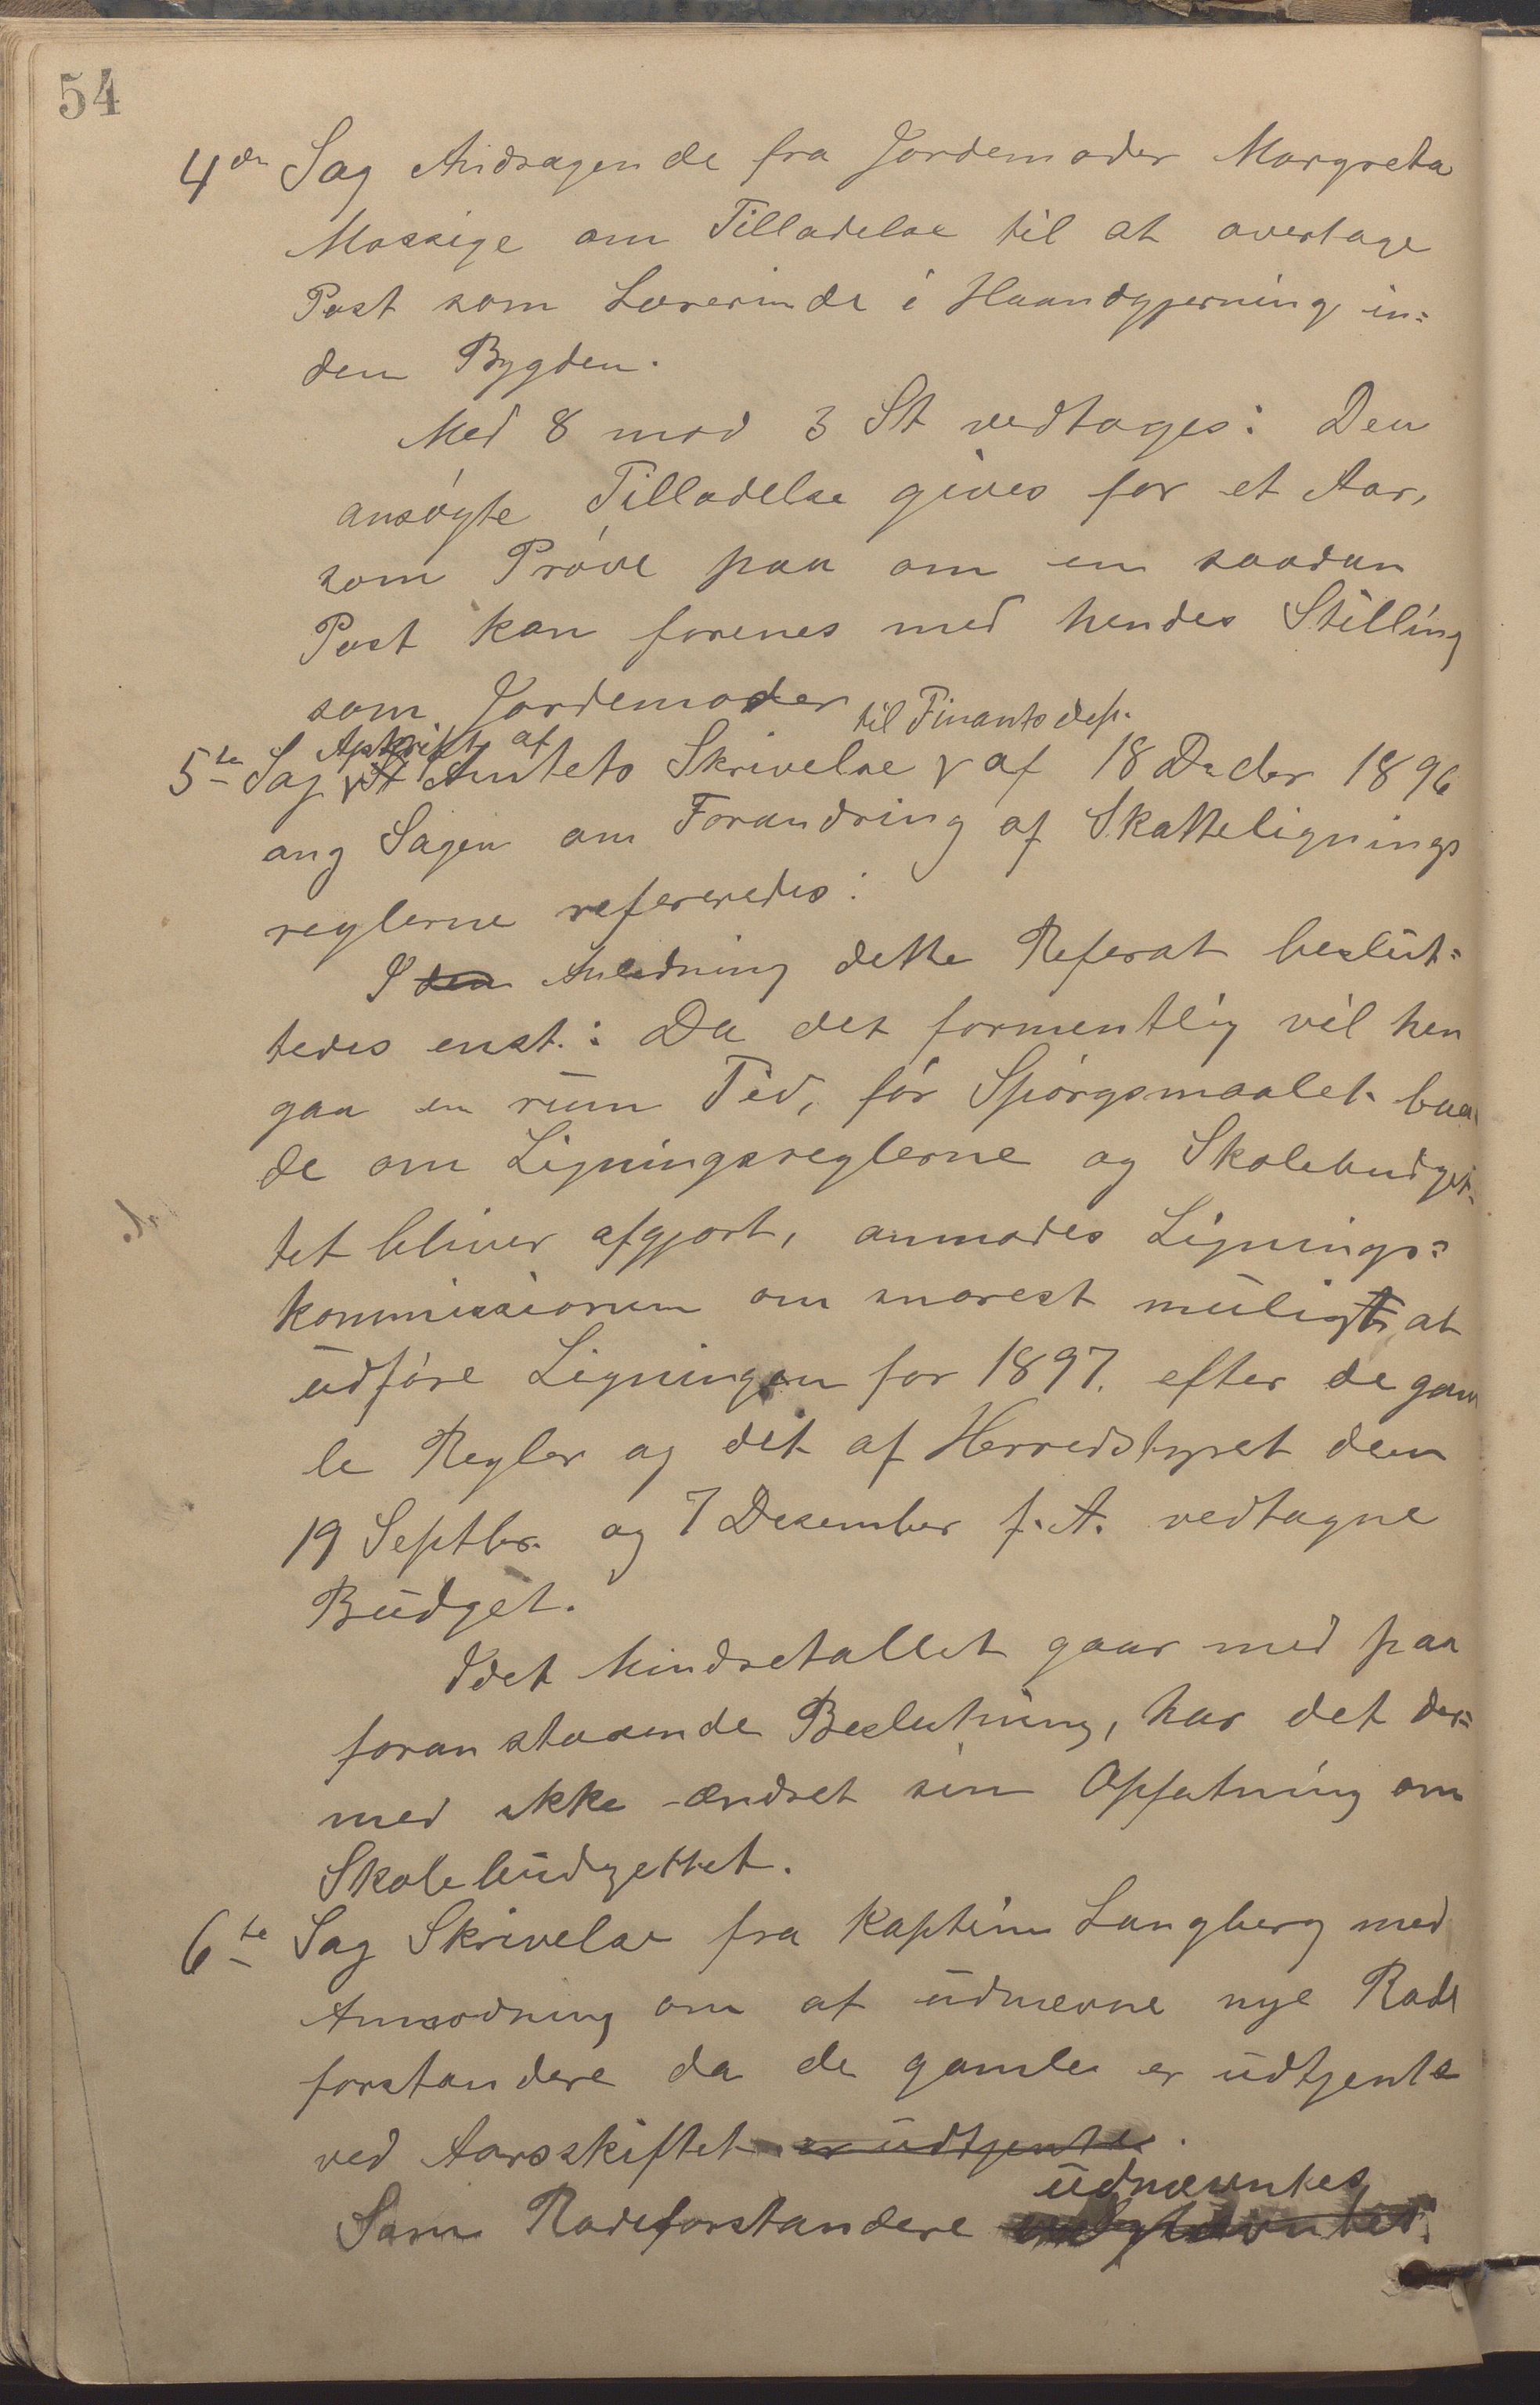 54
4de Sag Andragende fra Jordemoder Margreta
Mossige om Tilladelse til at overtage
Post som Lærerinde i Haandgjerning in=
den Bygden.
Med 8 mod 3 St vedtages: Den
ansøgte Tilladelse gives for et Aar,
som Prøve paa om en saadan
Post kan forenes med hendes Stilling
som Jordemoder
5te Sag Afskrift af Amtets Skrivelse til Finantsdep. af 18 Decbr 1896
ang Sagen om Forandring af Skattelignings
reglerne refereredes:
I den Anledning dette Referat beslut=
tedes enst.: Da det formentlig vil hen
gaa en rum Tid, før Spørgsmaalet baa
de om Ligningsreglerne og Skolebudget
tet bliver afgjort, anmodes Lignings=
kommissionen om snarest muligt at
udføre Ligningen for 1897. efter de gam
le Regler og det af Herredstyret den
19 Septbr. og 7 Desember f. A. vedtagne
Budget.
Idet Mindretallet gaar med paa
foranstaaende Beslutning, har det der=
med ikke ændret sin Opfatning om
Skolebudgettet.
6te Sag Skrivelse fra Kaptein Langberg med
Anmodning om at udnævne nye Rode
forstandere da de gamle er udtjente
ved Aarsskiftet er udtjente.
Som Rodeforstandere udnævntes